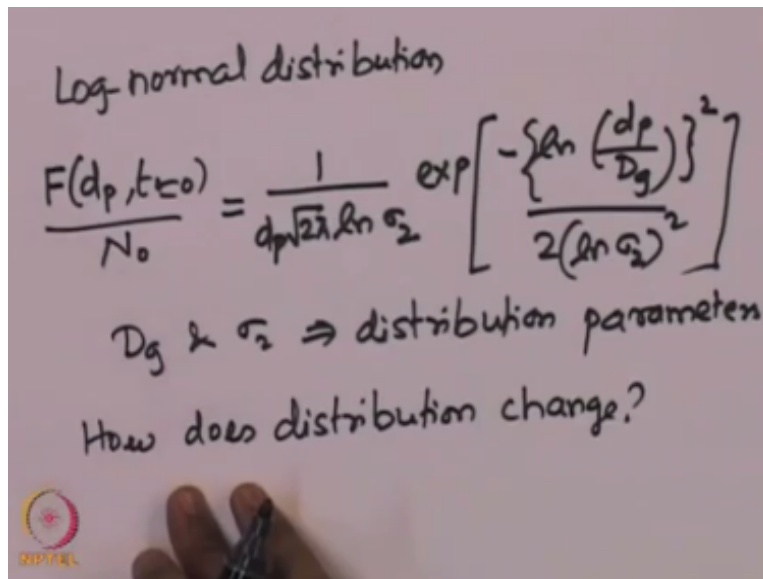 Log-normal distribution
F(dp, t=0) / N0 = 1 / (dp √2π ln σ2) exp[ -{ln (dp/Dg)}² / 2(ln σ2)² ]
Dg & σ2 ⇒ distribution parameters
How does distribution change?
NPTEL